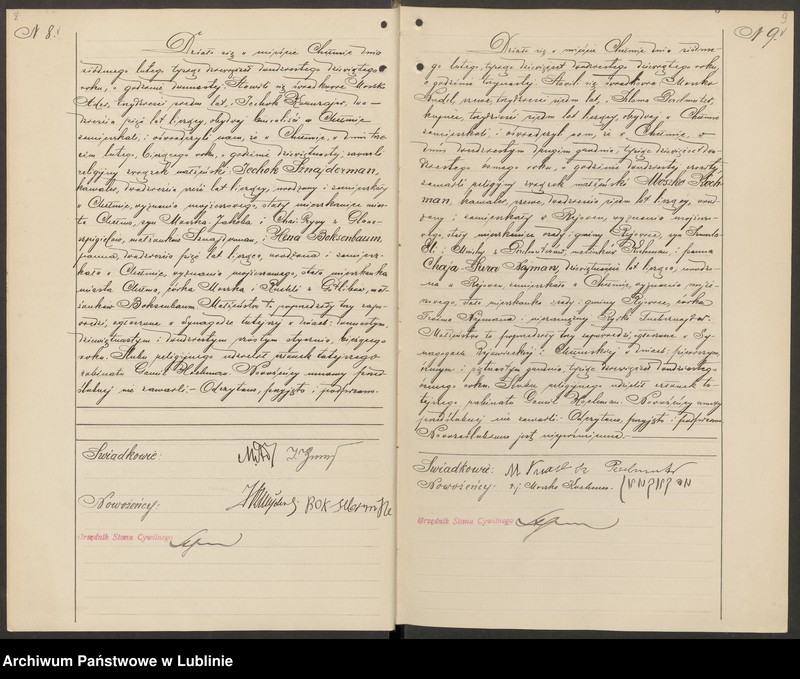 8
N 8.
Działo się w mieście Chełmie dnia
siódmego lutego, tysiąc dziewięćset dwudziestego dziewiątego
roku, o godzinie dwunastej. Stawili się świadkowie Moszko
Ader, trzydzieści siedem lat, i Icchok
dwadzieścia pięć lat liczący, obydwaj w Chełmie
zamieszkali, i oświadczyli nam, że w Chełmie, w dniu trze-
cim lutego, bieżącego roku, o godzinie dziewiętnastej, zawarli
religijny związek małżeński: Icchok Sznajderman,
kawaler, dwadzieścia sześć lat liczący, urodzony i zamieszkały
w Chełmie, wyznania mojżeszowego, stały mieszkaniec mia-
sta Chełma, syn Moszka Jakóba i Chai Ryvy z
małżonków Sznajderman, i Hena Boksenbaum,
panna, dwadzieścia pięć lat licząca, urodzona i zamiesz-
kała w Chełmie, wyznania mojżeszowego, stała mieszkanka
miasta Chełma, córka Moszka i Ruchli z mał-
żonków Boksenbaum. Małżeństwo to poprzedziły trzy zapo-
wiedzi, ogłoszone w Synagodze tutejszej w dniach: dwunastym,
dziewiętnastym i dwudziestym szóstym stycznia, bieżącego
roku. Ślubu religijnego udzielił członek tutejszego
rabinatu Gamil Nowożeńcy umowy przed-
ślubnej nie zawarli. Odczytano, przyjęto i podpisano.
Świadkowie:
Nowożeńcy:
Urzędnik Stanu Cywilnego
9
N 9.
Działo się w mieście Chełmie dnia siódme-
go lutego, tysiąc dziewięćset dwudziestego dziewiątego roku,
o godzinie trzynastej. Stawili się świadkowie Moszko
trzydzieści siedem lat, i Szloma Perlmuter,
trzydzieści siedem lat liczący, obydwaj w Chełmie
zamieszkali, i oświadczyli nam, że w Chełmie, w
dniu dwudziestym drugim grudnia, tysiąc dziewięćset dwu-
dziestego ósmego roku, o godzinie dwudziestej
zawarli religijny związek małżeński: Moszko
man, kawaler, dwadzieścia siedem lat liczący, uro-
dzony i zamieszkały w Rejowcu, wyznania mojżeszo-
wego, stały mieszkaniec osady i gminy Rejowiec, syn
małżonków i panna
Chaja-Sura Najman, dziewiętnaście lat licząca, urodzo-
na w Rejowcu, zamieszkała w Chełmie, wyznania mojże-
szowego, stała mieszkanka osady i gminy Rejowiec, córka
Najmana i
Małżeństwo to poprzedziły trzy zapowiedzi, ogłoszone w Sy-
nagogach Rejowieckiej i Chełmskiej w dniach: pierwszym,
ósmym i piętnastym grudnia, tysiąc dziewięćset dwudziestego
ósmego roku. Ślubu religijnego udzielił członek tu-
tejszego rabinatu Gamil Nowożeńcy umowy
przedślubnej nie zawarli. Odczytano, przyjęto i podpisano.
Nowozaślubiona jest niepiśmienna.
Świadkowie:
Nowożeńcy: Moszko
Urzędnik Stanu Cywilnego
Archiwum Państwowe w Lublinie